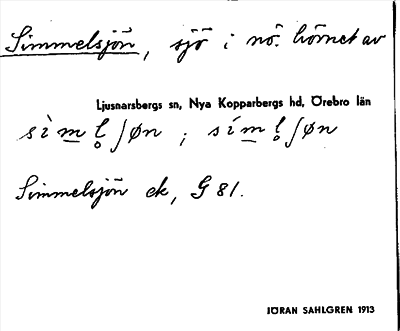 Simmelsjön, sjö i nö. hörnet av
Ljusnarsbergs sn, Nya Kopparbergs hd, Örebro län
sìml̥ʃøn ; síml̥ʃøn
Simmelsjön ek, G 81.
JÖRAN SAHLGREN 1913